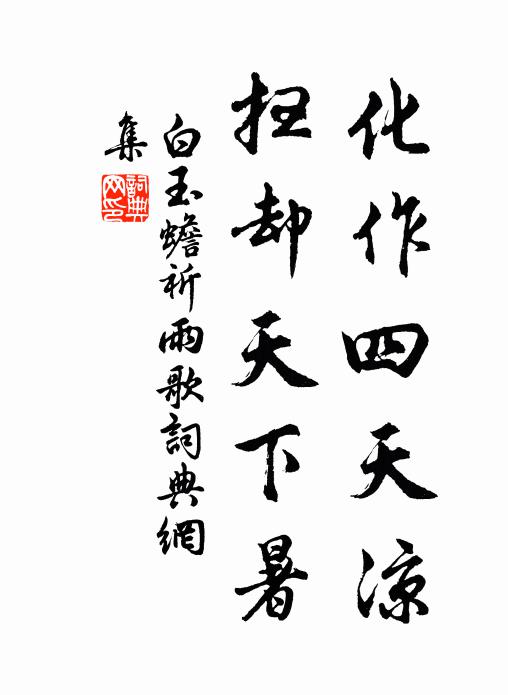 化作四天涼
扫却天下暑
白玉蟾祈雨歌詞典網
集
詞典
网印